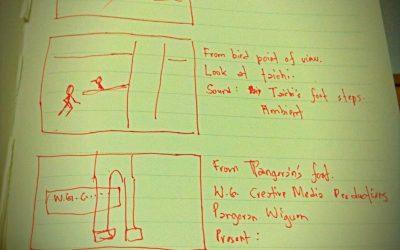 From bird point of view.
Look at taichi.
Sound: Taichi's foot steps.
Ambient
From Pangeran's foot.
W.G. Creative Media Productions
Pangeran Wigum
Present:
W.G. C....